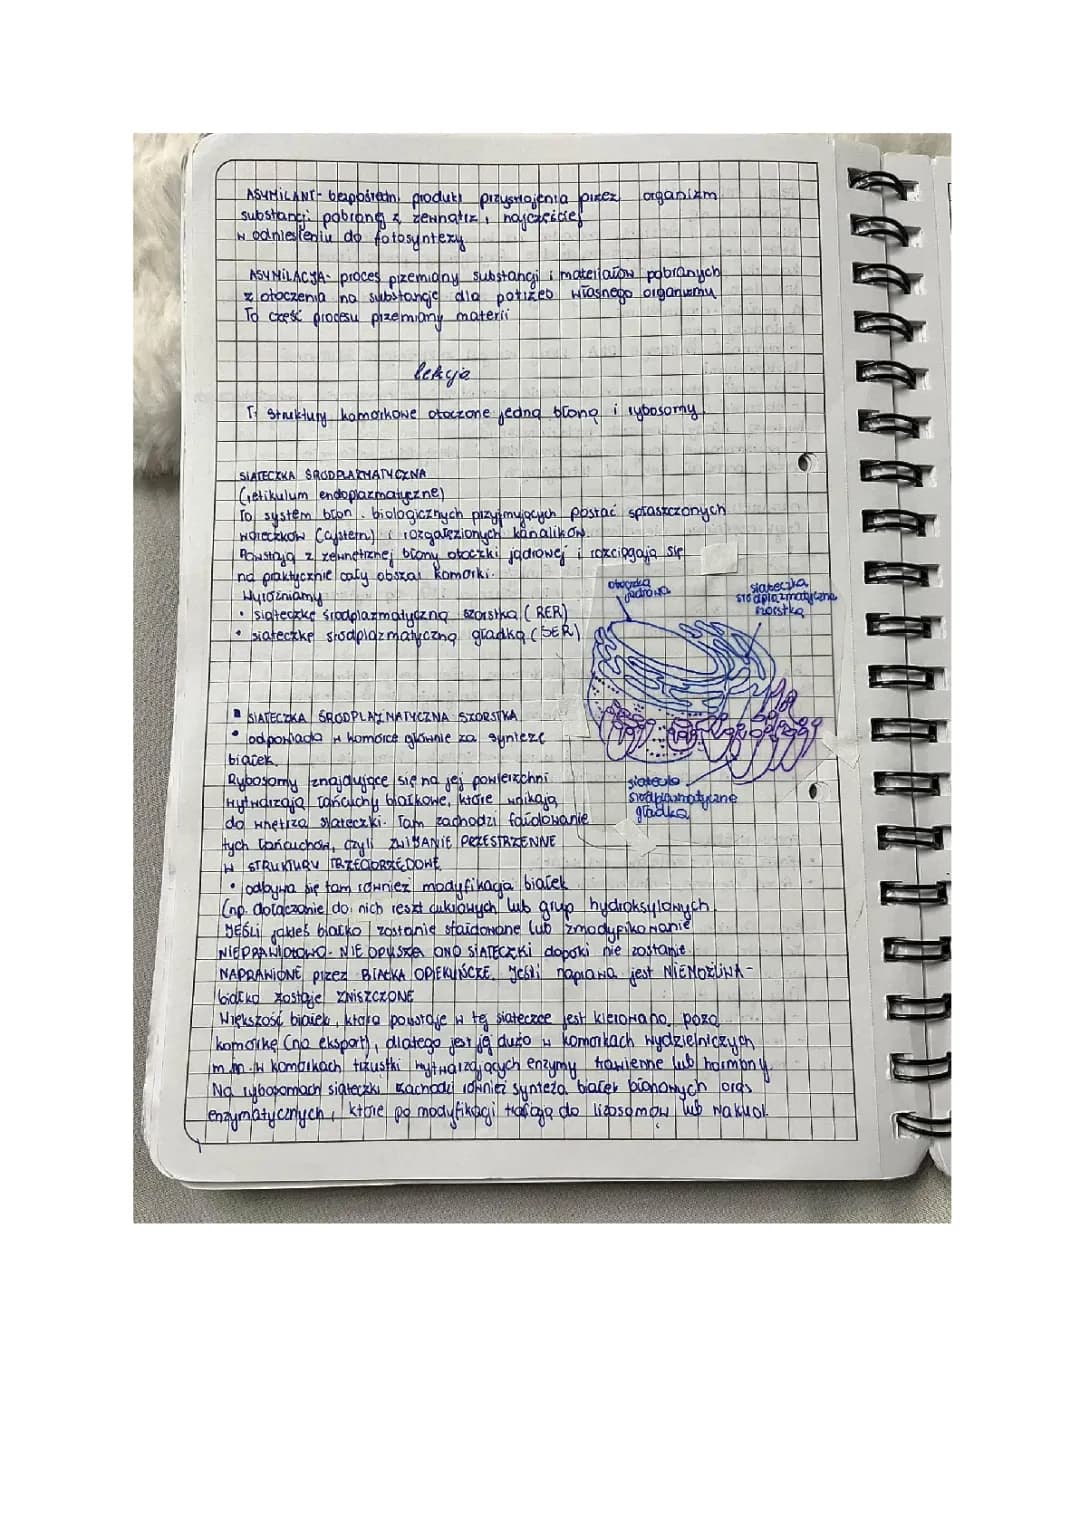 ASYMILANT- bezpośredni produkt przyswojenia przez organizm
substancji pobraną z zewnątrz, najczęściej
w odniesieniu do fotosyntezy
ASYMILACJA- proces przemiany substancji i materiałów pobranych
z otoczenia na substancje dla potrzeb własnego organizmu
To część procesu przemiany materii
lekcja
T: Struktury komórkowe otoczone jedną błoną i rybosomy.
SIATECZKA ŚRÓDPLAZMATYCZNA
(retikulum endoplazmatyczne)
To system błon biologicznych przyjmujących postać spłaszczonych
woreczków (cystern) i rozgałęzionych kanalików.
Powstają z zewnętrznej błony otoczki jądrowej i rozciągają się
na praktycznie cały obszar komórki.
Wyróżniamy
• siateczkę śródplazmatyczną szorstką (RER)
• siateczkę śródplazmatyczną gładką (SER)
otoczka
jądrowa
siateczka
śródplazmatyczna
szorstka
siateczka
śródplazmatyczne
gładka
▪ SIATECZKA ŚRÓDPLAZMATYCZNA SZORSTKA
• odpowiada w komórce głównie za syntezę
białek.
Rybosomy znajdujące się na jej powierzchni
wytwarzają łańcuchy białkowe, które wnikają
do wnętrza siateczki. Tam zachodzi fałdowanie
tych łańcuchów, czyli ZWIJANIE PRZESTRZENNE
W STRUKTURY TRZECIORZĘDOWE
• odbywa się tam również modyfikacja białek
(np. dołączanie do nich reszt cukrowych lub grup hydroksylowych
JEŚLI jakieś białko zostanie sfałdowane lub zmodyfikowanie
NIEPRAWIDŁOWO- NIE OPUSZCZA ONO SIATECZKI dopóki nie zostanie
NAPRAWIONE przez BIAŁKA OPIEKUŃCZE. Jeśli naprawa jest NIEMOŻLIWA-
białko zostaje ZNISZCZONE
Większość białek, która powstaje w tej siateczce jest kierowana poza
komórkę (na eksport), dlatego jest jej dużo w komórkach wydzielniczych
m.in. w komórkach trzustki wytwarzających enzymy trawienne lub hormony.
Na rybosomach siateczki zachodzi również synteza białek błonowych oraz
enzymatycznych, które po modyfikacji trafiają do lizosomów lub wakuol.